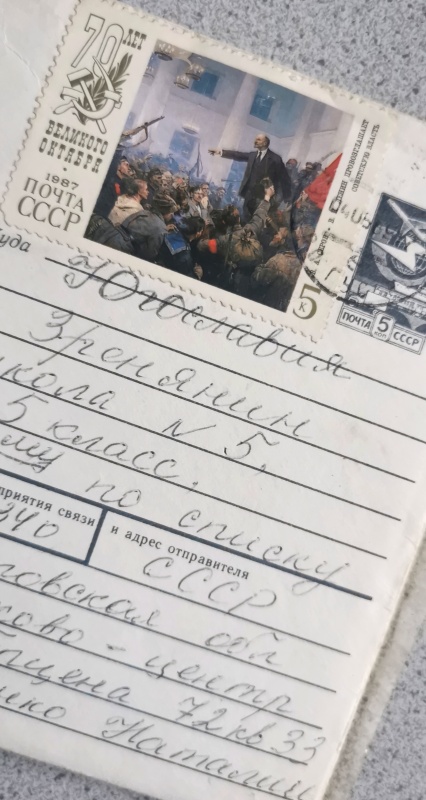 70 ЛЕТ
ВЕЛИКОГО
ОКТЯБРЯ
1987
ПОЧТА
СССР
В. И. ЛЕНИН ПРОВОЗГЛАШАЕТ
СОВЕТСКУЮ ВЛАСТЬ
5 К
ПОЧТА 5 КОП СССР
уда
Югославия
Зренянин
кола N 5,
5 класс,
ому по списку
приятия связи и адрес отправителя
340
СССР
овская обл
ово-центр
72 кв 33
Наталии